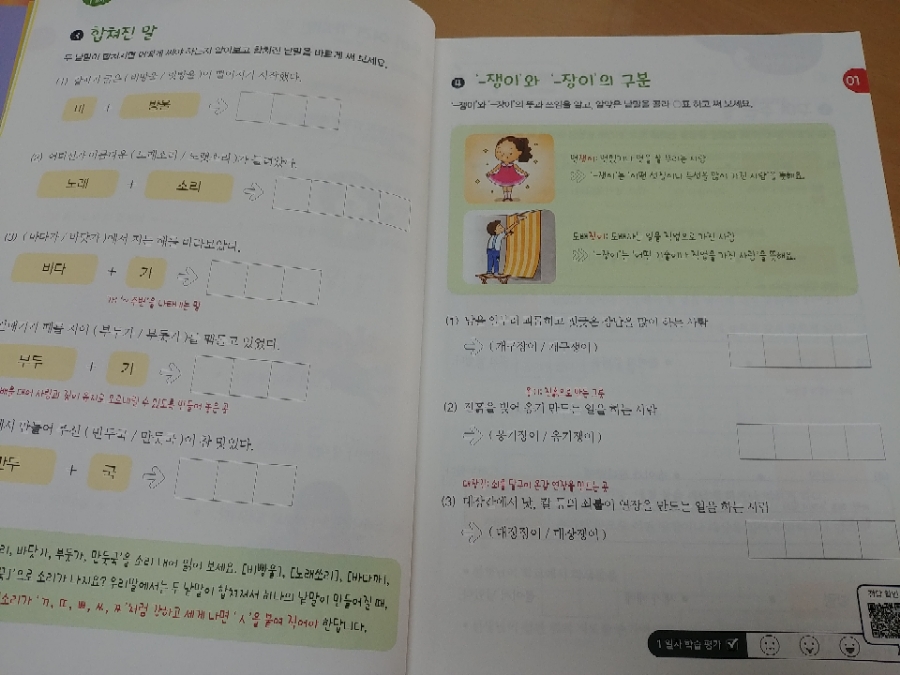 합쳐진 말
두 낱말이 합쳐지면 어떻게 써야 하는지 알아보고, 합쳐진 낱말을 바르게 써 보세요.
(1) (비방울 / 빗방울)이 떨어지기 시작했다.
비 + 방울
(2) 어디선가 (노래소리 / 노랫소리)가 들려왔다.
노래 + 소리
(3) (바다가 / 바닷가)에서 지는 해를 바라보았다.
바다 + 가
(부두가 / 부둣가)를 맴돌고 있었다.
부두 + 가
배를 대어 사람과 짐이 육지로 오르내릴 수 있도록 만들어 놓은 곳
만들어 주신 (만두국 / 만둣국)이 참 맛있다.
만두 + 국
바닷가, 부둣가, 만둣국'을 소리 내어 읽어 보세요. [비빵울], [노래쏘리], [바다까],
으로 소리가 나지요? 우리말에서는 두 낱말이 합쳐져서 하나의 낱말이 만들어질 때,
소리가 'ㄲ, ㄸ, ㅃ, ㅆ, ㅉ'처럼 강하고 세게 나면 'ㅅ'을 붙여 적어야 한답니다.
'-쟁이'와 '-장이'의 구분
01
'-쟁이'와 '-장이'의 뜻과 쓰임을 알고, 알맞은 낱말을 골라 ○표 하고 써 보세요.
멋쟁이: 멋있거나 멋을 잘 부리는 사람
'-쟁이'는 '어떤 성질이나 특성을 많이 가진 사람'을 뜻해요.
도배장이: 도배하는 일을 직업으로 가진 사람
'-장이'는 '어떤 기술이나 직업을 가진 사람'을 뜻해요.
(1) 남을 괴롭히고 짓궂은 장난을 많이 하는 사람
(개구장이 / 개구쟁이)
옹기: 진흙으로 만든 그릇
(2) 진흙을 빚어 옹기 만드는 일을 하는 사람
(옹기장이 / 옹기쟁이)
대장간: 쇠를 달구어 온갖 연장을 만드는 곳
(3) 대장간에서 낫, 칼 등의 쇠붙이 연장을 만드는 일을 하는 사람
(대장장이 / 대장쟁이)
1일차 학습 평가